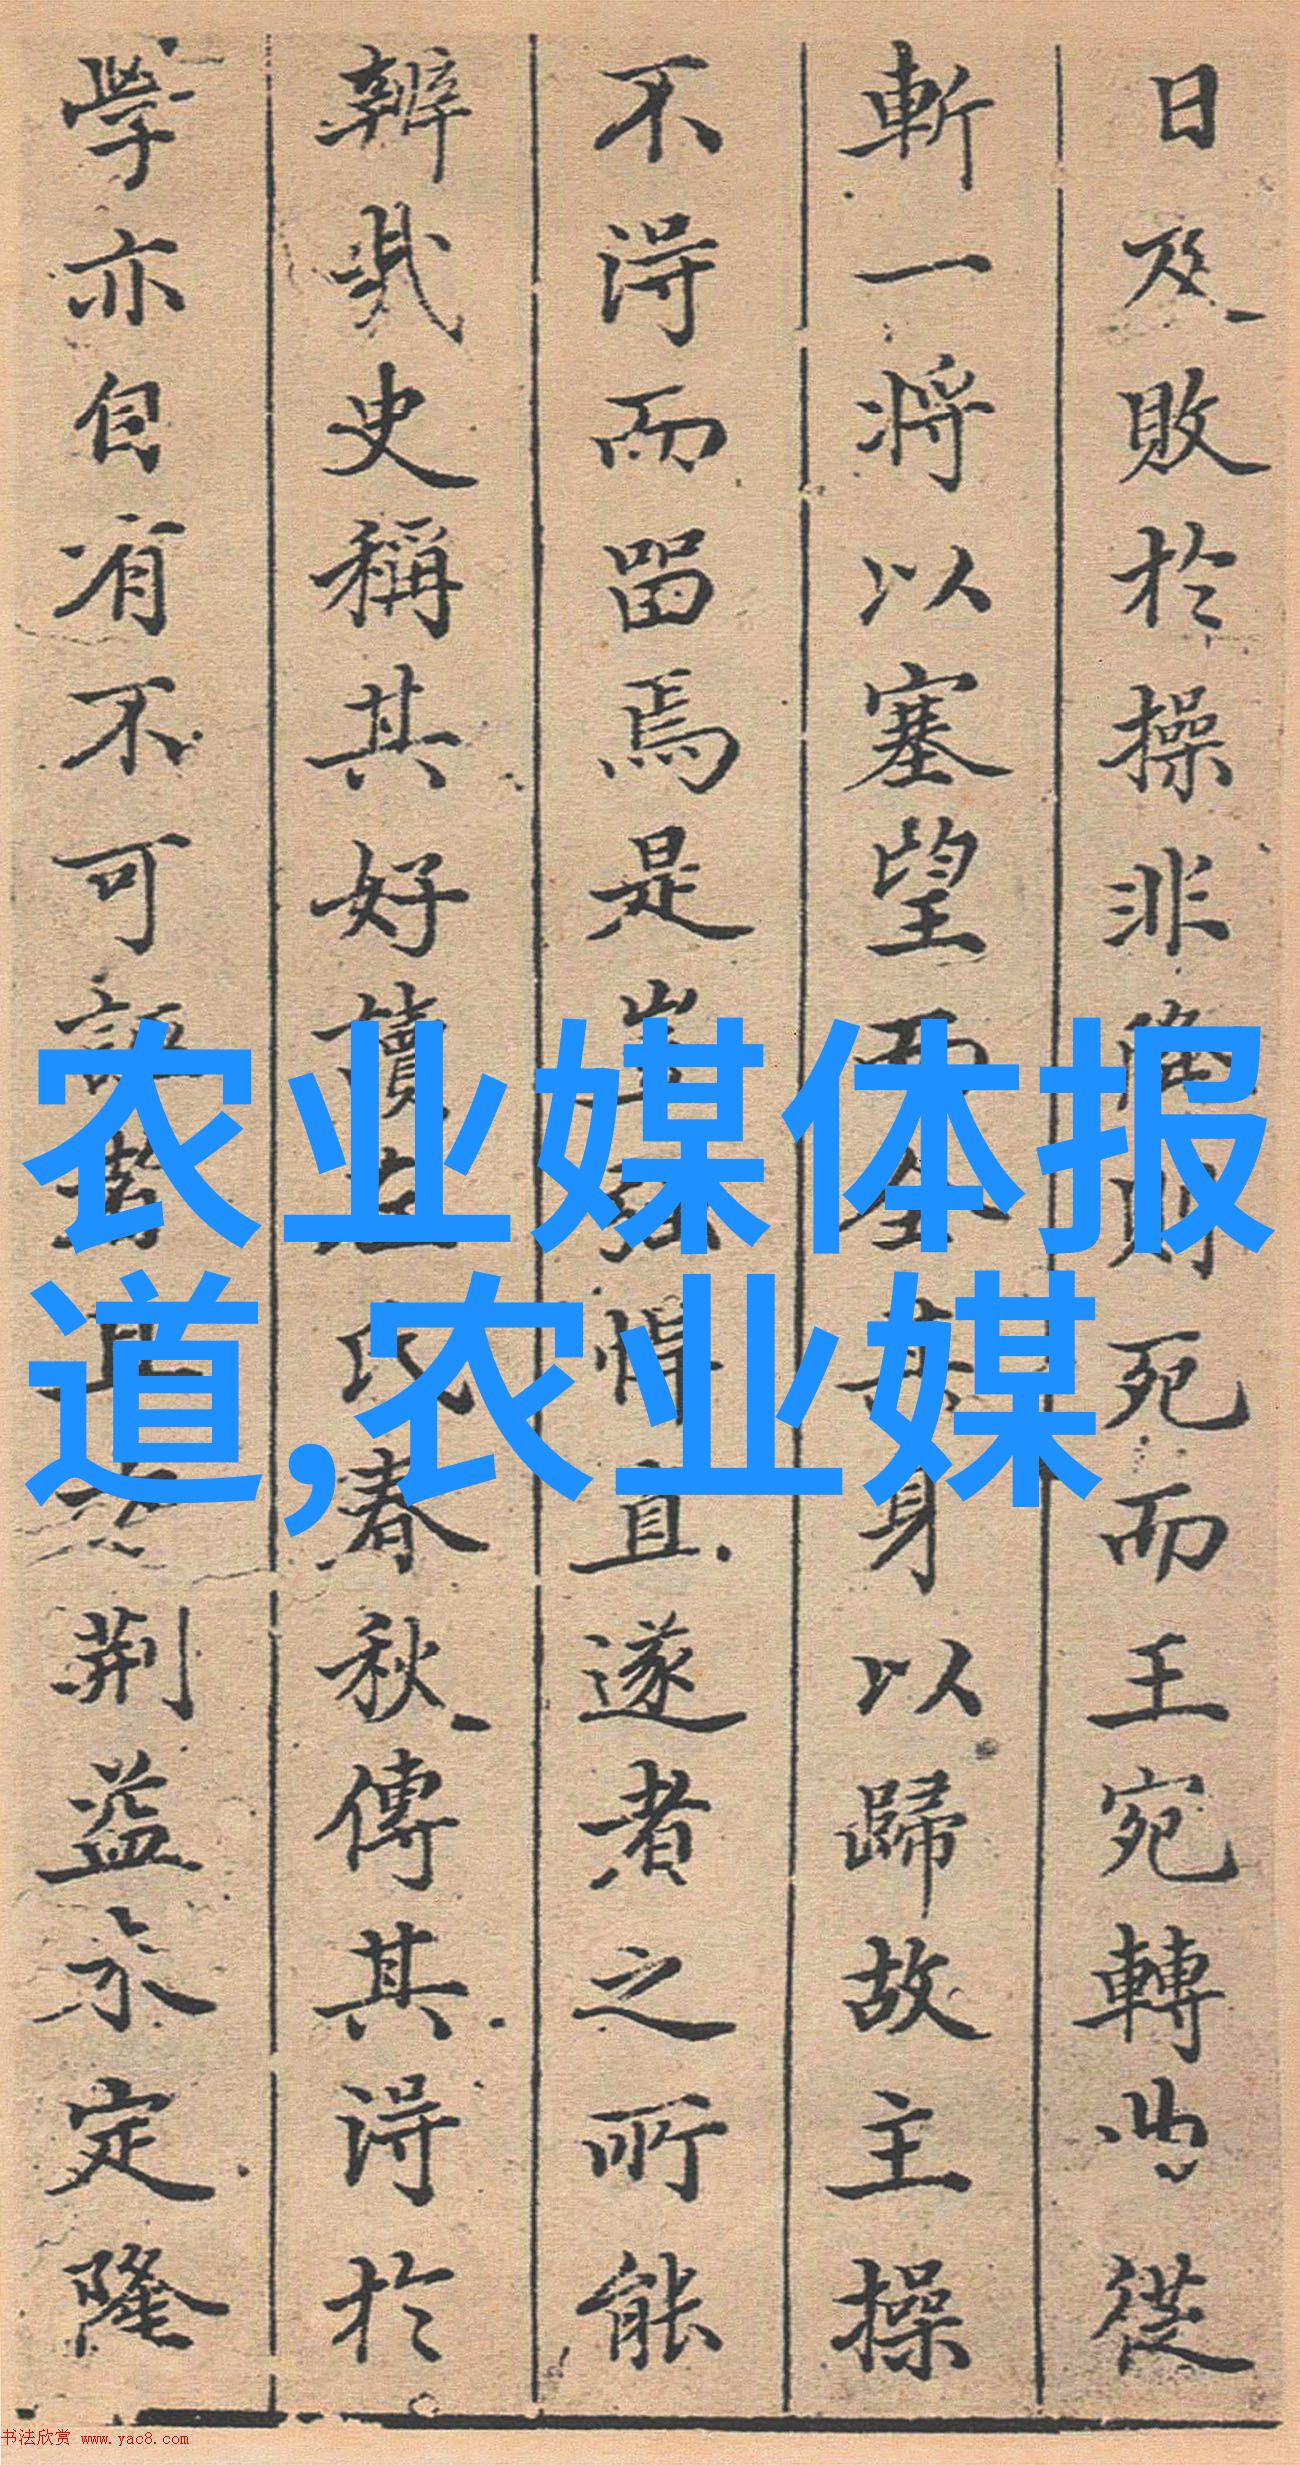 日及敗於操非降則死而王宛轉曲從
斬一将以塞望而全其身以歸故主操
不淂而留焉是豈強悍直遂者之所能
辨哉史稱其好讀左氏春秋傳其淂於
學亦自有不可誣荆益未定隆
农业媒体报
道,农业媒
书法欣赏 www.yac8.com